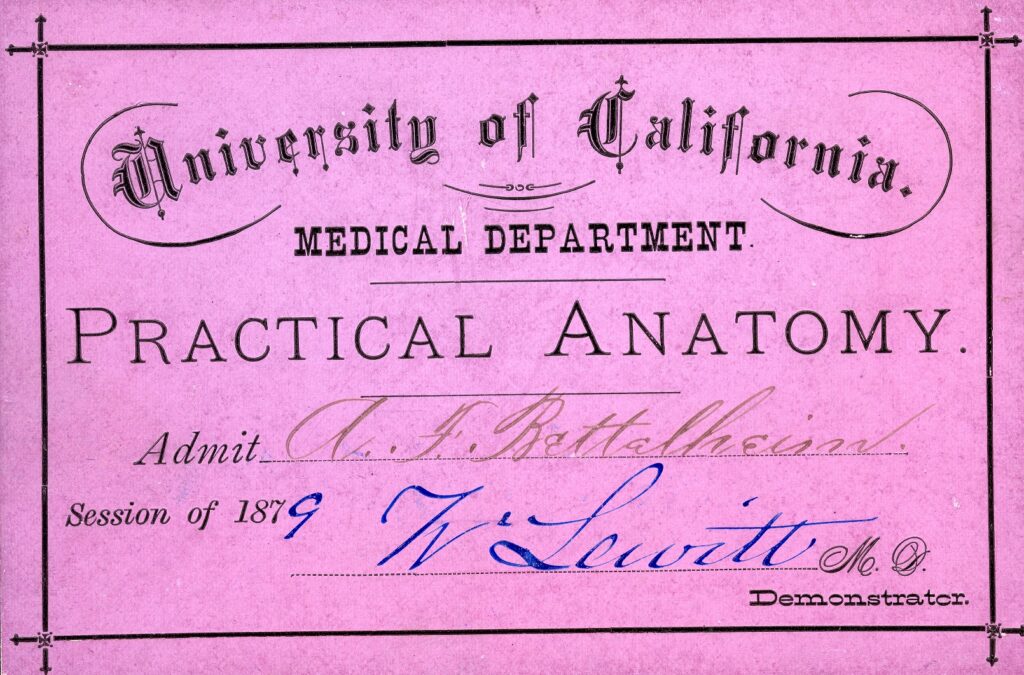 University of California.
MEDICAL DEPARTMENT.
PRACTICAL ANATOMY.
Admit A. F. Bettelheim.
Session of 1879
Wm Lewitt M. D.
Demonstrator.